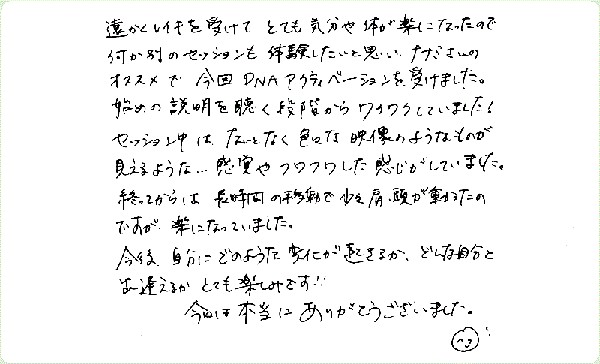 遠かくレイキを受けて とても気分や体が楽になったので
何か別のセッションも体験したいと思い、ナガさんの
オススメで 今回DNAアクティベーションを受けました。
始めの説明を聴く段階からワクワクしていました!
セッション中は、なんとなく色々な映像のようなものが
見えるような… 感覚や フワフワした感じがしていました。
終ってからは 長時間の移動で少々肩、頭が重かったの
ですが 楽になっていました。
今後、自分にどのような変化が起きるか、どんな自分と
出逢えるか とても楽しみです!!
今回は本当に ありがとうございました。